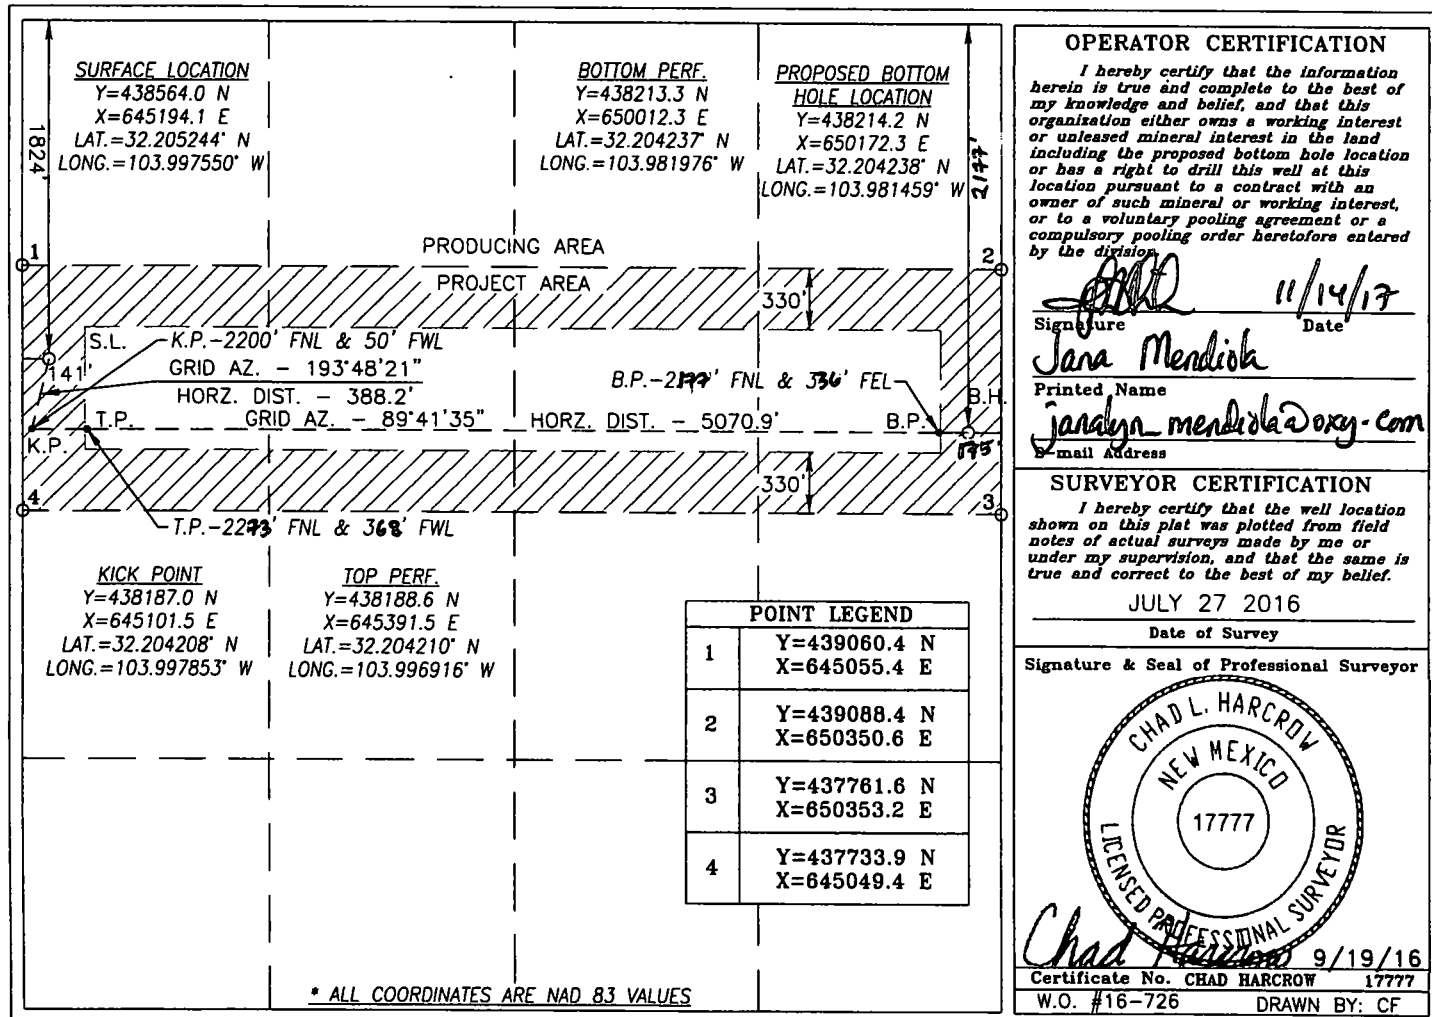 SURFACE LOCATION
Y=438564.0 N
X=645194.1 E
LAT.=32.205244° N
LONG.=103.997550° W
BOTTOM PERF.
Y=438213.3 N
X=650012.3 E
LAT.=32.204237° N
LONG.=103.981976° W
PROPOSED BOTTOM
HOLE LOCATION
Y=438214.2 N
X=650172.3 E
LAT.=32.204238° N
LONG.=103.981459° W
1824'
2177'
1
PRODUCING AREA
2
PROJECT AREA
330'
S.L.
K.P.-2200' FNL & 50' FWL
141'
GRID AZ. - 193°48'21"
HORZ. DIST. - 388.2'
B.P.-2177' FNL & 336' FEL
B.H.
T.P.
GRID AZ. - 89°41'35"
HORZ. DIST. - 5070.9'
B.P.
K.P.
175'
330'
4
3
T.P.-2273' FNL & 368' FWL
KICK POINT
Y=438187.0 N
X=645101.5 E
LAT.=32.204208° N
LONG.=103.997853° W
TOP PERF.
Y=438188.6 N
X=645391.5 E
LAT.=32.204210° N
LONG.=103.996916° W
POINT LEGEND
1 Y=439060.4 N
X=645055.4 E
2 Y=439088.4 N
X=650350.6 E
3 Y=437761.6 N
X=650353.2 E
4 Y=437733.9 N
X=645049.4 E
* ALL COORDINATES ARE NAD 83 VALUES
OPERATOR CERTIFICATION
I hereby certify that the information
herein is true and complete to the best of
my knowledge and belief, and that this
organization either owns a working interest
or unleased mineral interest in the land
including the proposed bottom hole location
or has a right to drill this well at this
location pursuant to a contract with an
owner of such mineral or working interest,
or to a voluntary pooling agreement or a
compulsory pooling order heretofore entered
by the division.
11/14/17
Signature Date
Jana Mendiola
Printed Name
janalyn_mendiola@oxy.com
E-mail Address
SURVEYOR CERTIFICATION
I hereby certify that the well location
shown on this plat was plotted from field
notes of actual surveys made by me or
under my supervision, and that the same is
true and correct to the best of my belief.
JULY 27 2016
Date of Survey
Signature & Seal of Professional Surveyor
CHAD L. HARCROW
NEW MEXICO
17777
LICENSED PROFESSIONAL SURVEYOR
Chad Harcrow 9/19/16
Certificate No. CHAD HARCROW 17777
W.O. #16-726 DRAWN BY: CF